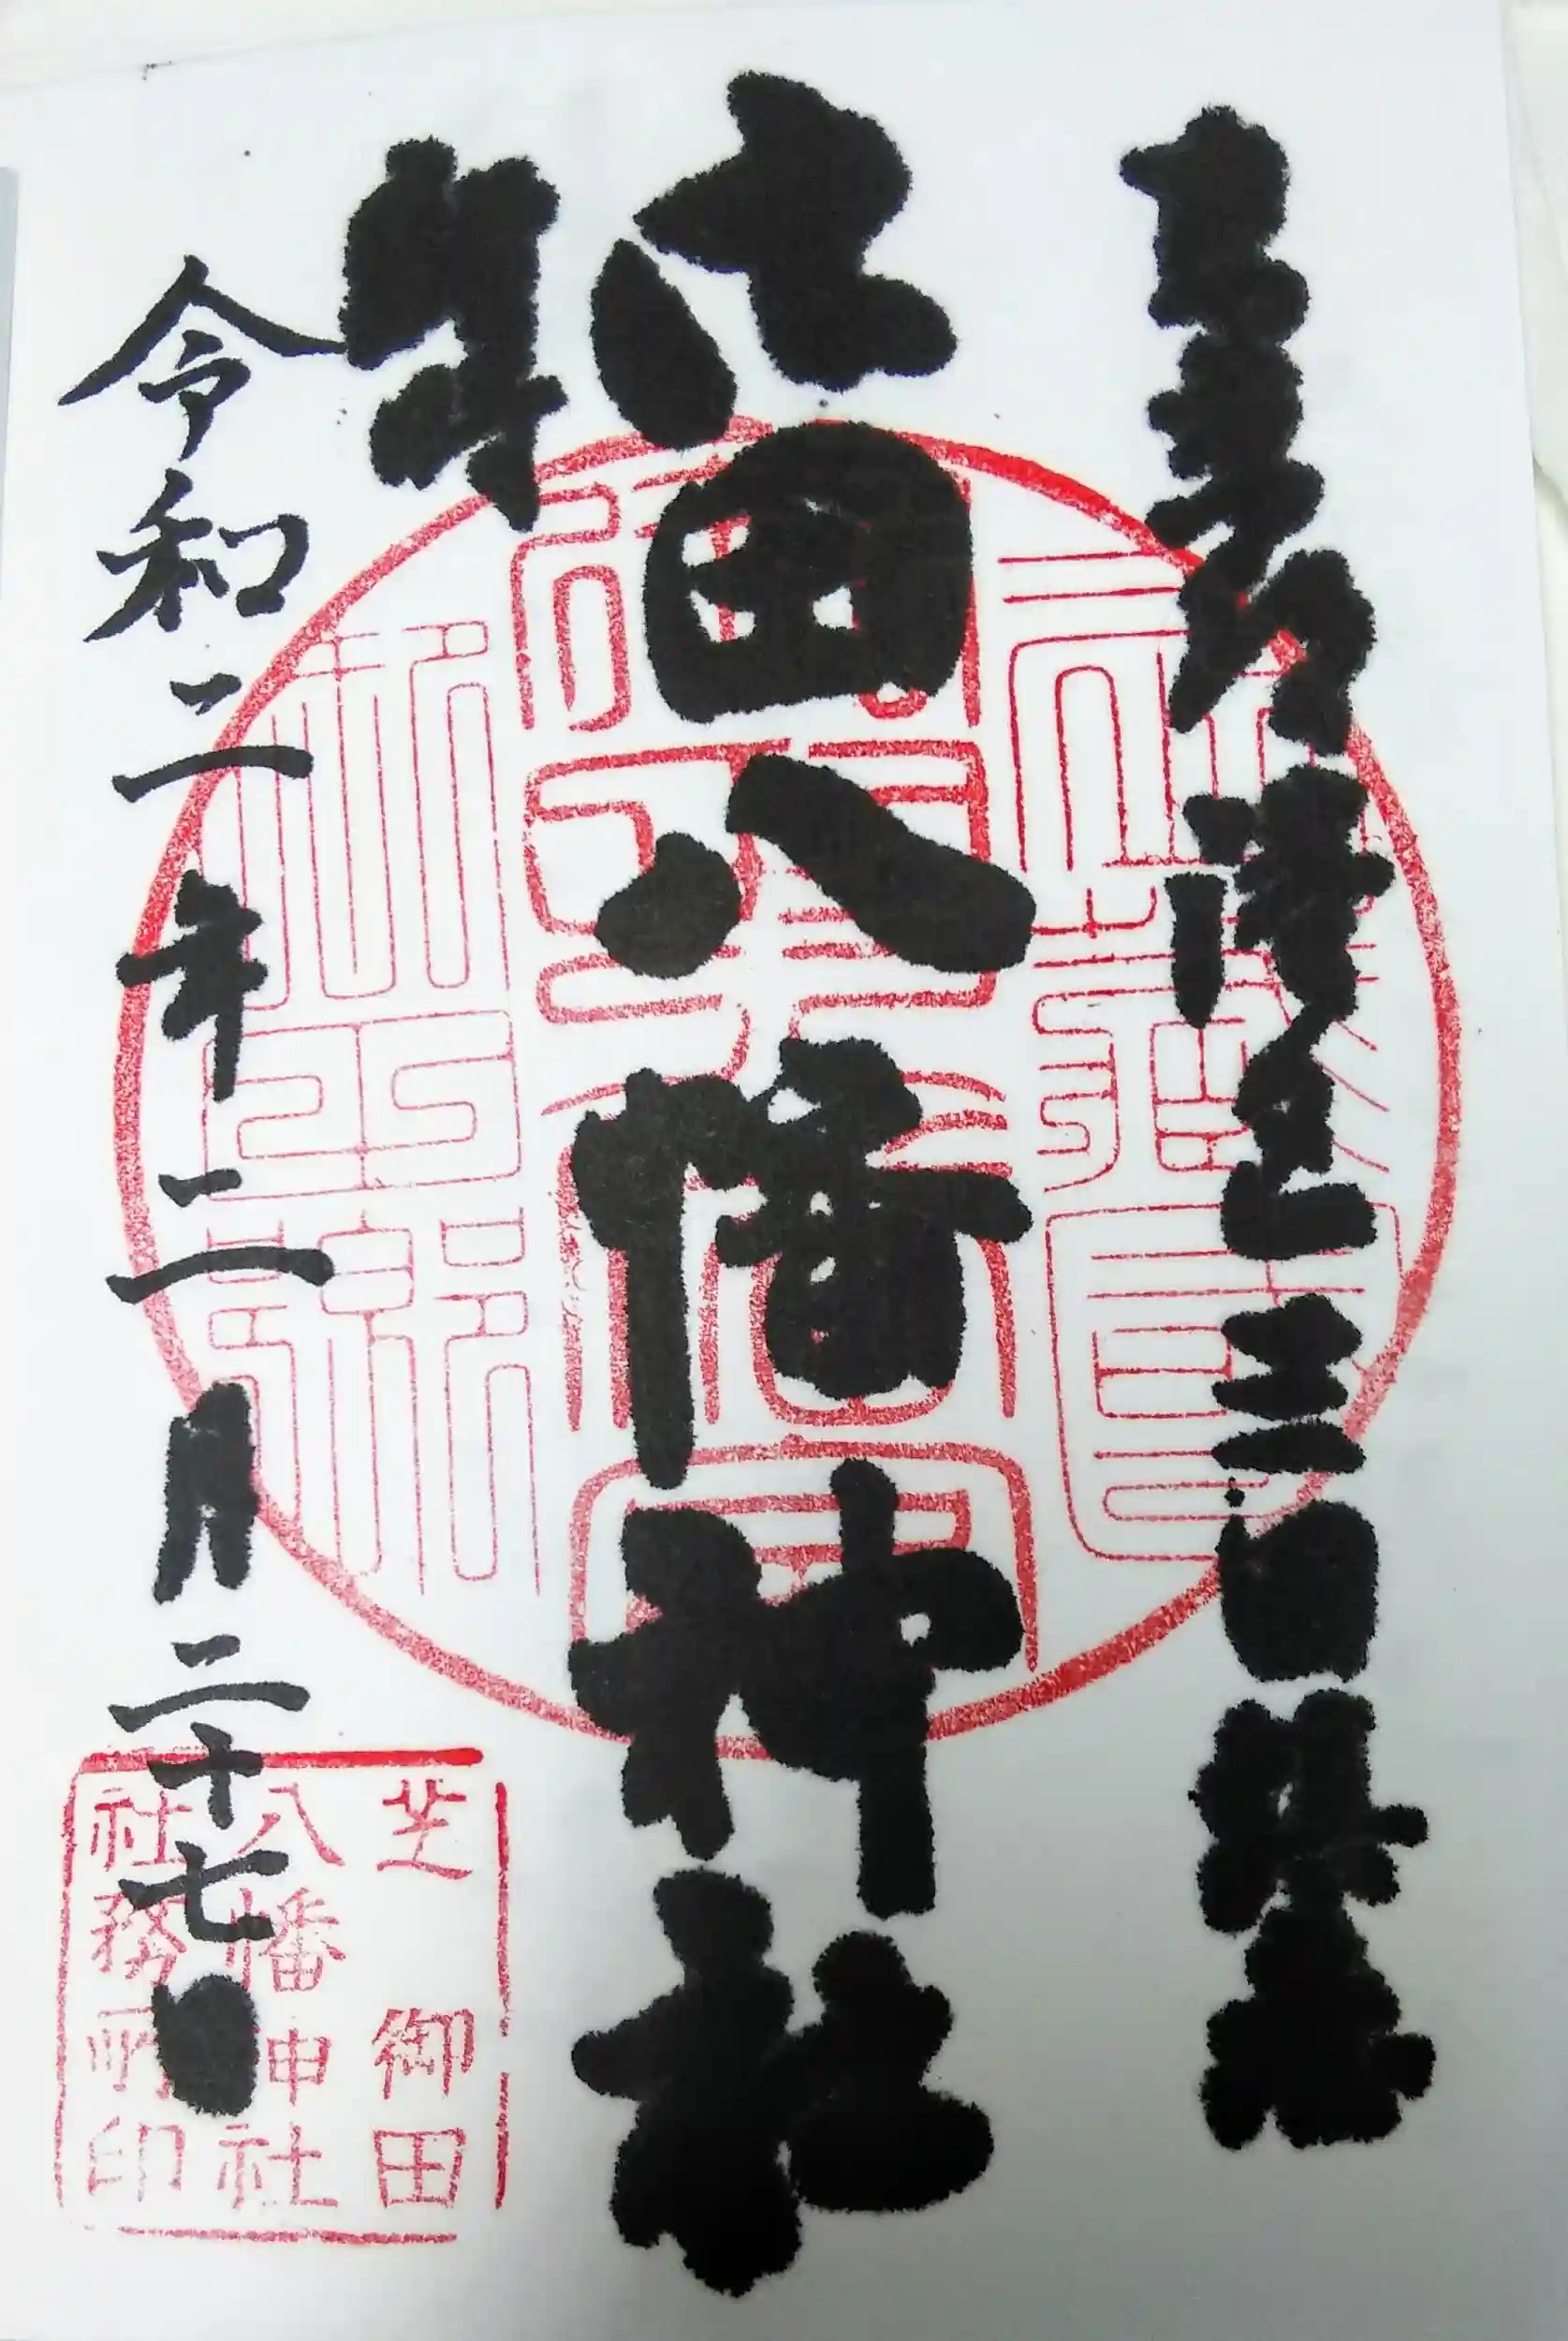 東京都港区三田鎮座
御田八幡神社
令和二年二月二十七日
芝 御田
八幡神社
社務所印